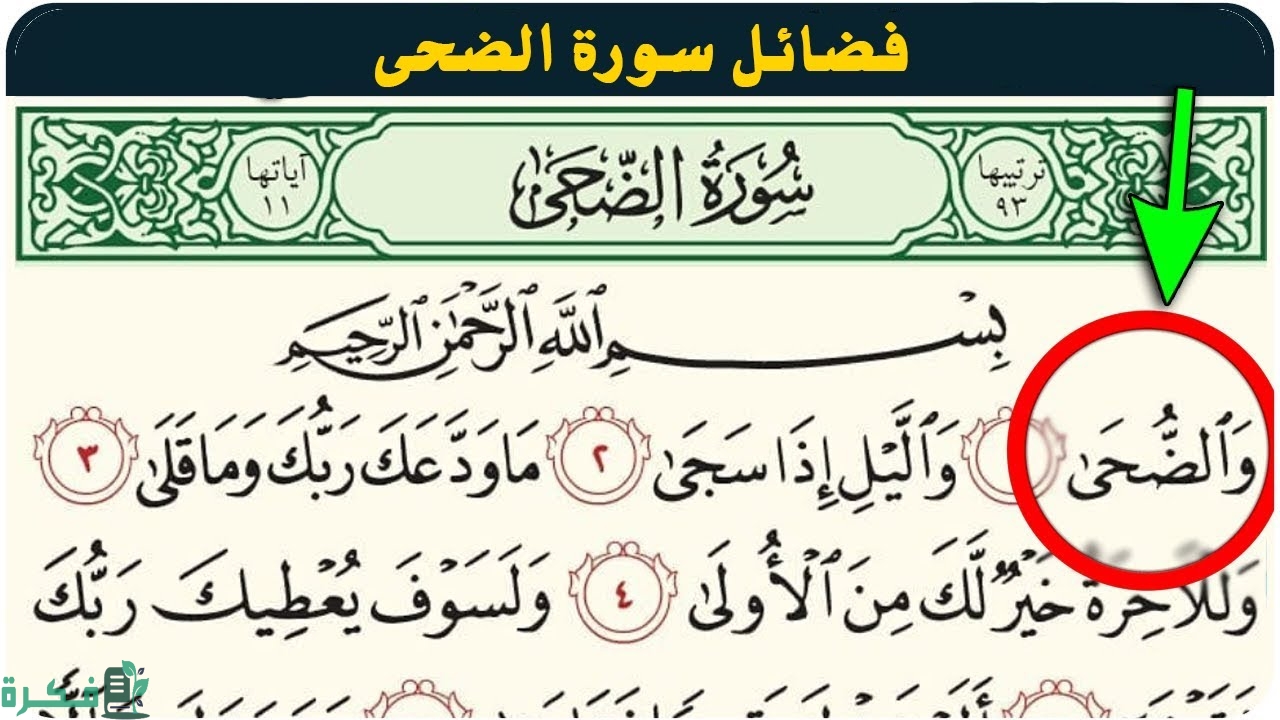 فضائل سورة الضحى
ترتيبها ٩٣
سُورَةُ الضُّحَىٰ
آياتها ١١
بِسْمِ ٱللَّهِ ٱلرَّحْمَٰنِ ٱلرَّحِيمِ
وَٱلضُّحَىٰ وَٱلَّيْلِ إِذَا سَجَىٰ ٢ مَا وَدَّعَكَ رَبُّكَ وَمَا قَلَىٰ ٣
وَلَلْآخِرَةُ خَيْرٌ لَّكَ مِنَ ٱلْأُولَىٰ ٤ وَلَسَوْفَ يُعْطِيكَ رَبُّكَ
فكرة